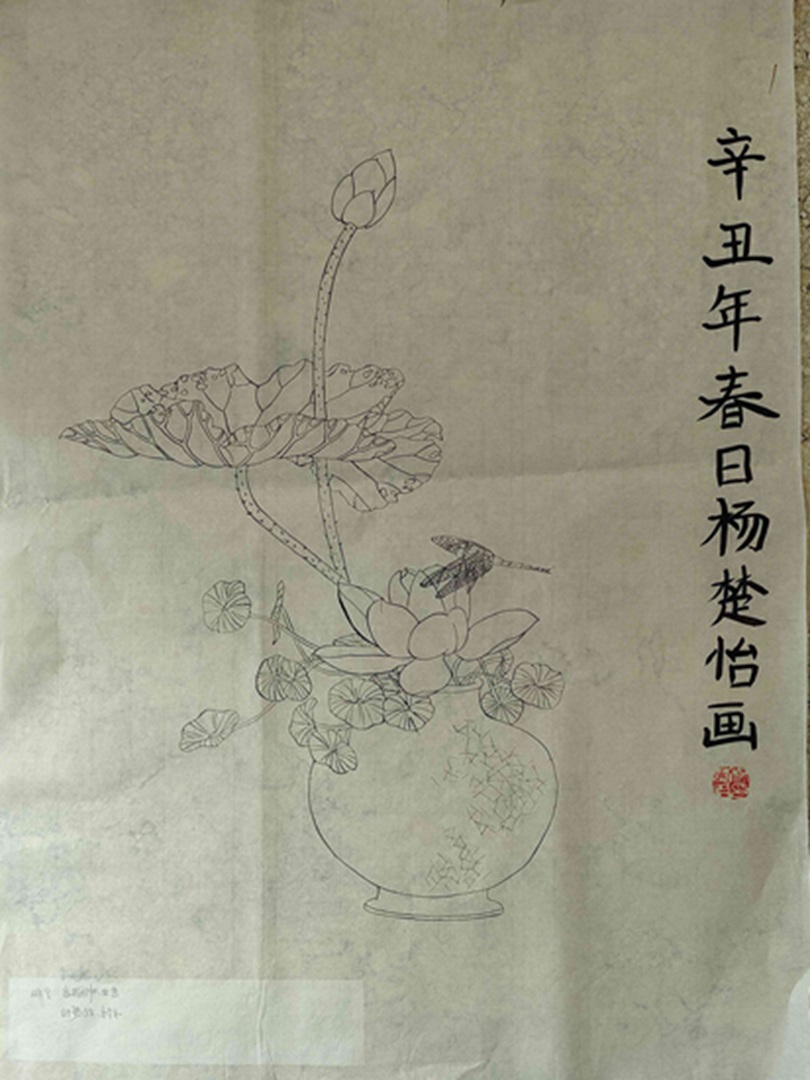 辛丑年春日杨楚怡画